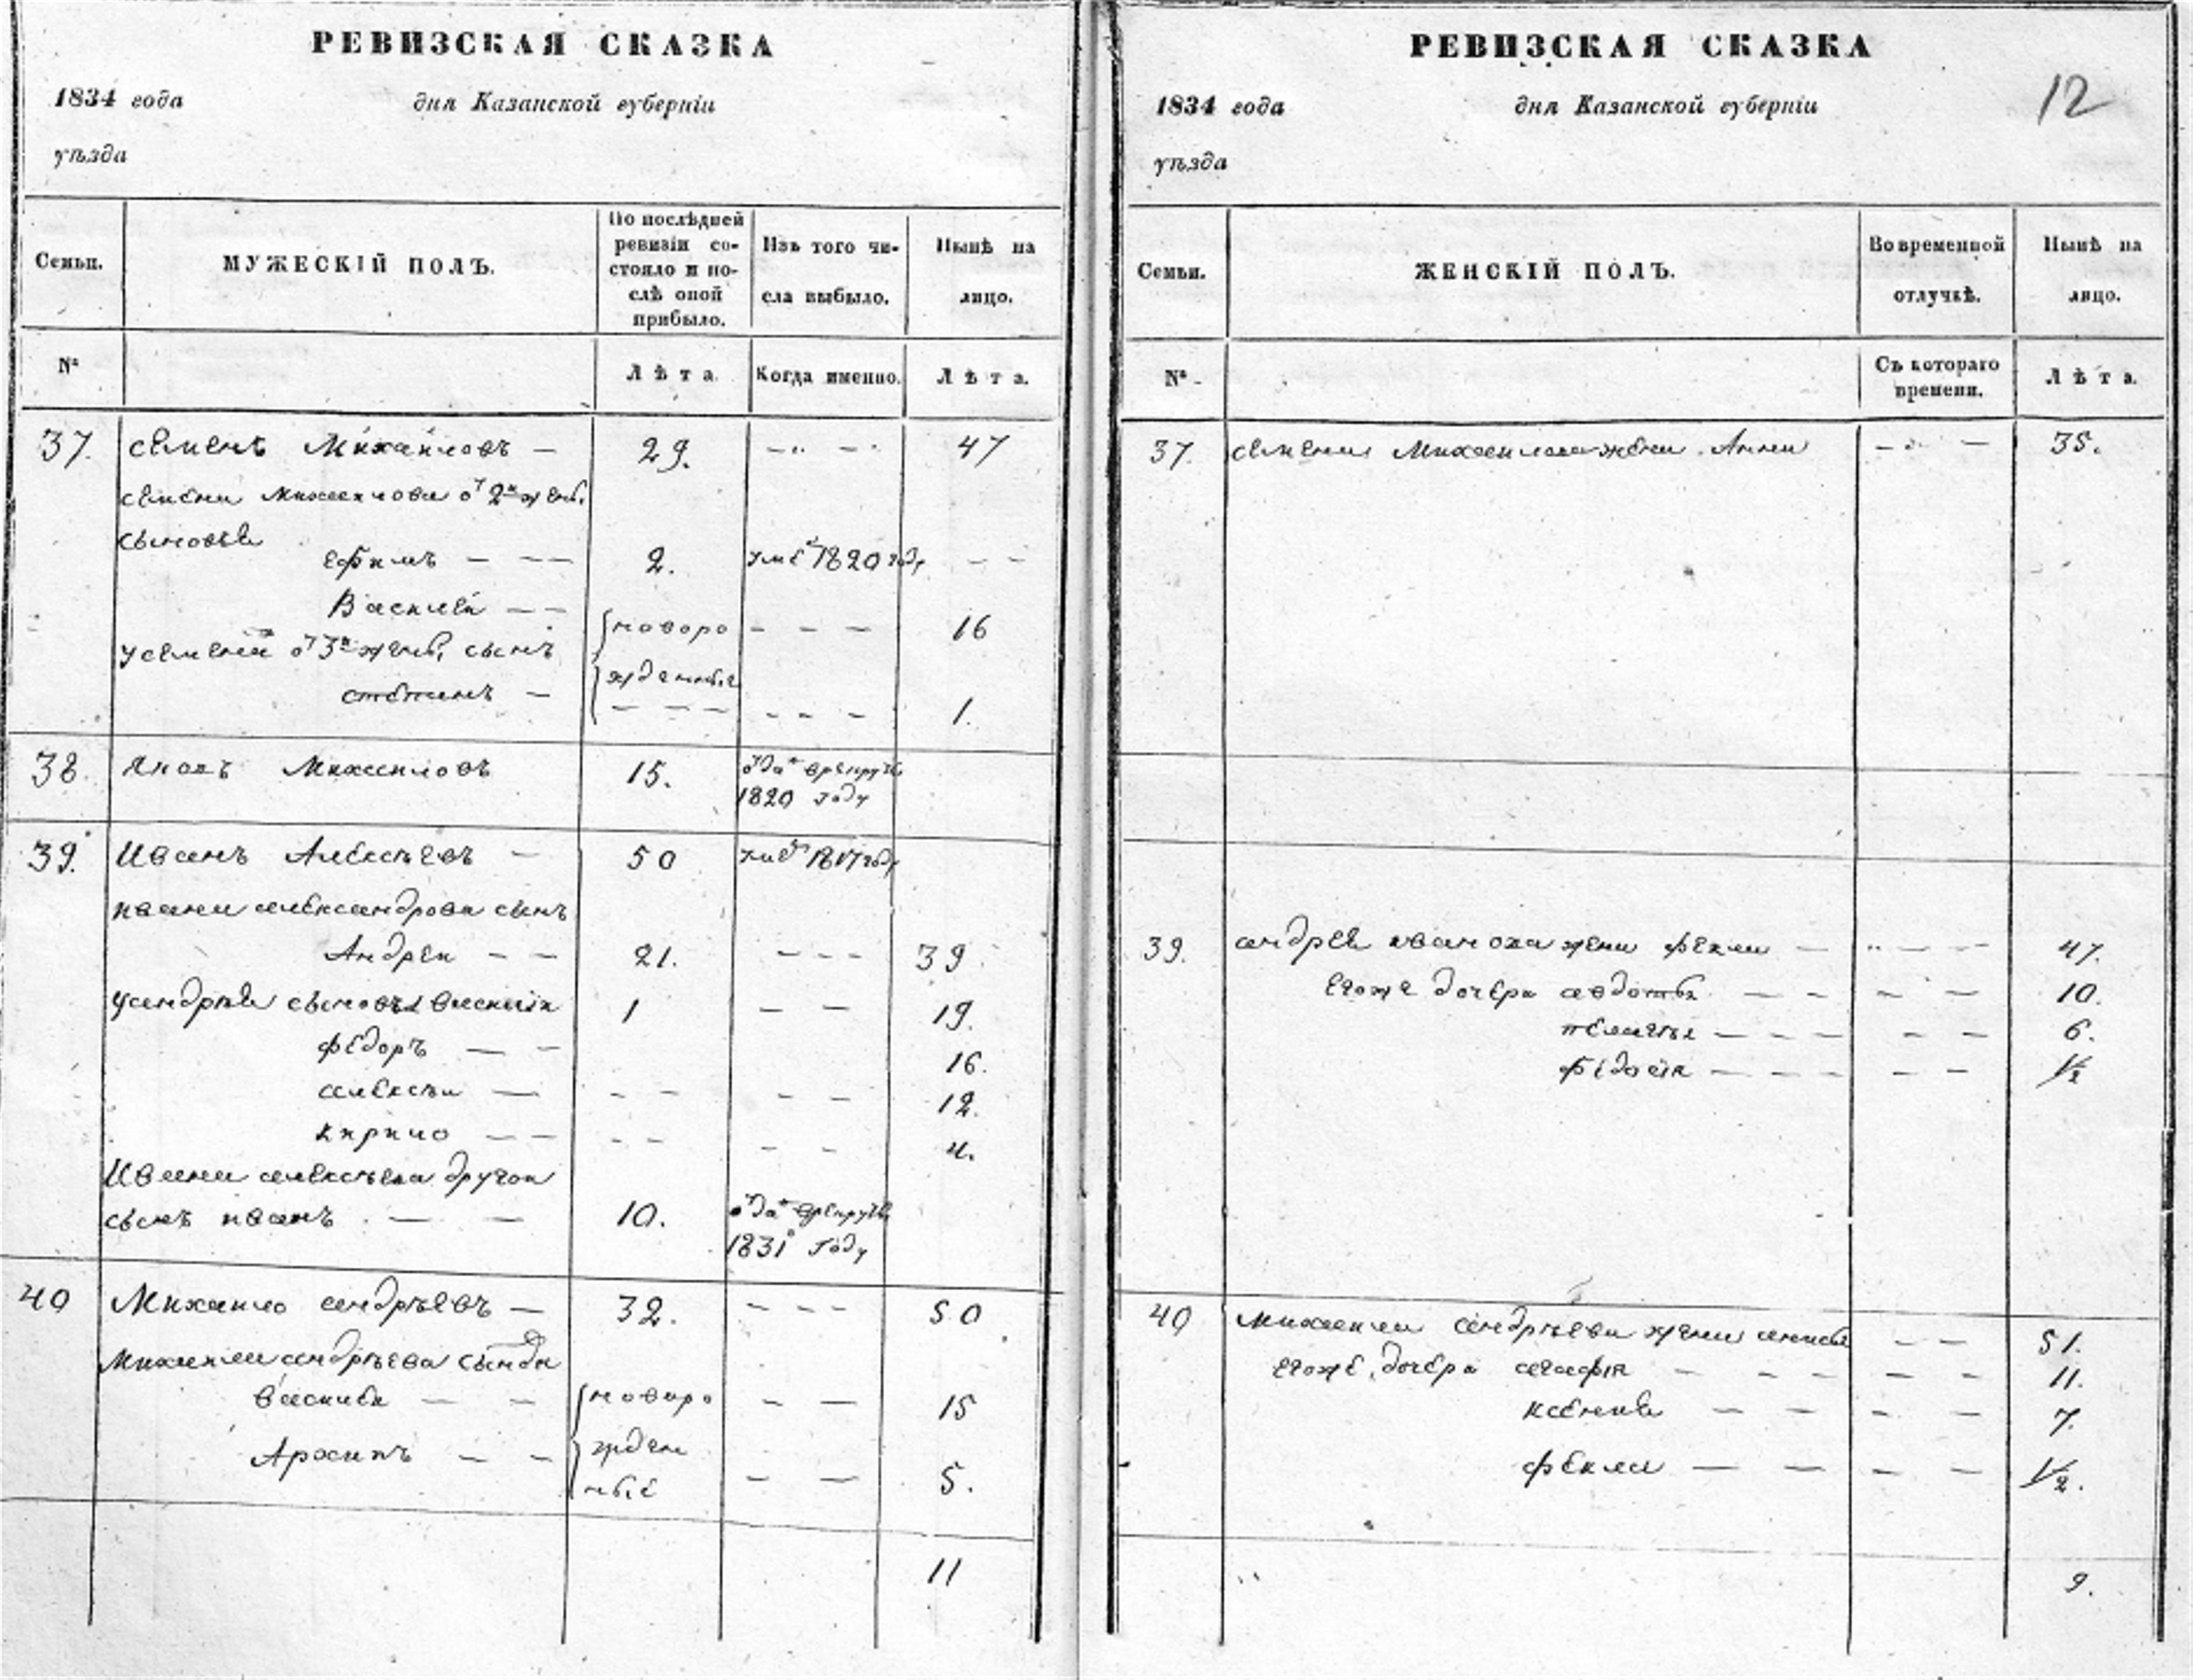 РЕВИЗСКАЯ СКАЗКА
1834 года дня Казанской губерніи
уѣзда
Семьи. МУЖЕСКІЙ ПОЛЪ. По послѣдней ревизіи состояло и послѣ оной прибыло. Изъ того числа выбыло. Нынѣ на лицо.
№ Лѣта. Когда именно. Лѣта.
37. Семенъ Михаиловъ — 29. — — 47
Семена Михаилова от 2й жены
сыновья
Ефимъ — — — 2. уме 1820 году — —
Василей — —
новоро — — — 16
У Семена от 3й жены сынъ
жденныя
Степанъ —
— — — — — — 1.
38. Яковъ Михаиловъ 15. отдан в рекруты
1820 году
39. Иванъ Алексѣевъ — 50 умер 1817 году
Ивана Александрова сынъ
Андреи — — 21. — — — 39
У Андрѣя сыновья Василiи 1 — — 19.
Федоръ — — 16.
Алексѣи — — — — — 12.
Кирило — — — — — — 4.
Ивана Алексѣева другои
сынъ Иванъ — — 10. отдан в рекруты
1831 году
40 Михаило Андрѣевъ — 32. — — — 50
Михаила Андрѣева сынова
Василей — — новоро — — 15
Архипъ — — жден
ные — — 5.
11
РЕВИЗСКАЯ СКАЗКА
12
1834 года дня Казанской губерніи
уѣзда
Семьи. ЖЕНСКІЙ ПОЛЪ. Во временной отлучкѣ. Нынѣ на лицо.
№ Съ котораго времени. Лѣта.
37. Семена Михаилова жена Анна — — 35.
39. Андрея Иванова жена Фекла — — — 47.
Егоже дочери Авдотья — — — — 10.
Пелагѣя — — — — — 6.
— — — — — 1/2
40 Михаила Андрѣева жена — — 51.
Егоже дочери Агафия — — — — — 11.
Ксения — — — — 7.
Фекла — — — — 1/2.
9.